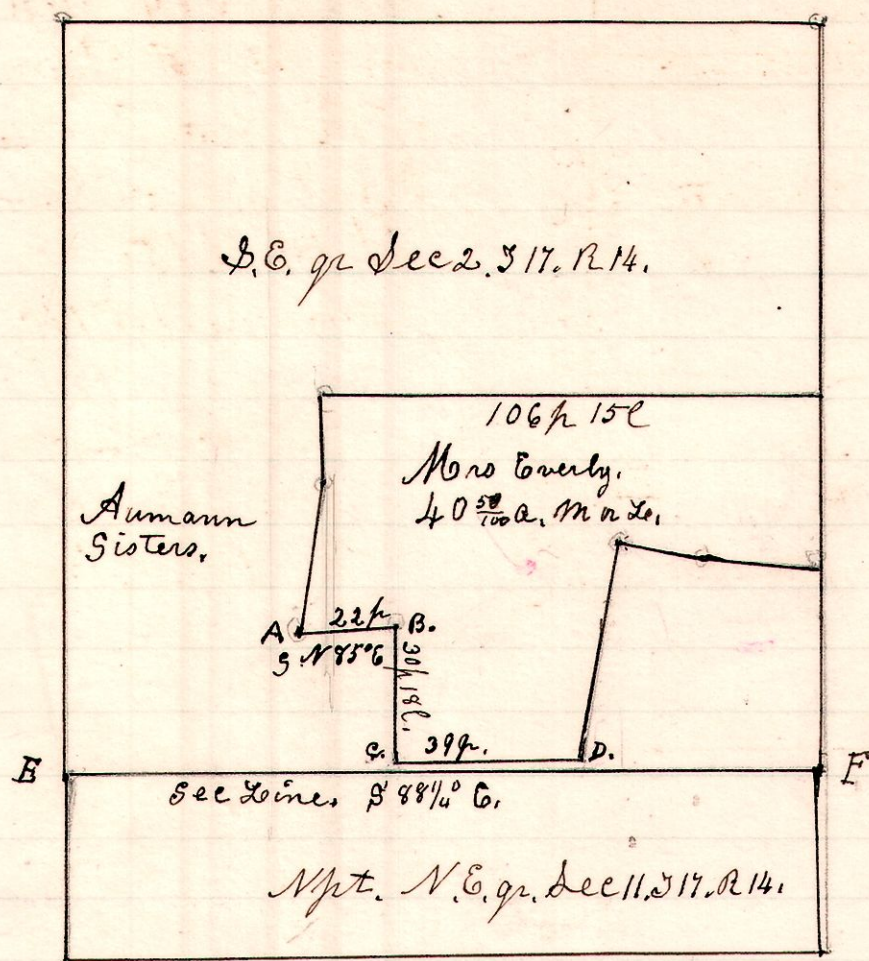 S.E. qr Sec 2. T 17. R 14.
106p 15l
Mrs Everly.
40 50/100 a. M or Le.
Aumann
Sisters.
A
22p
B.
S N 85° E
30p 18l.
C.
39p.
D.
E
F
Sec Line. S 88 1/4° E.
N pt. N.E. qr. Sec 11. T 17. R 14.